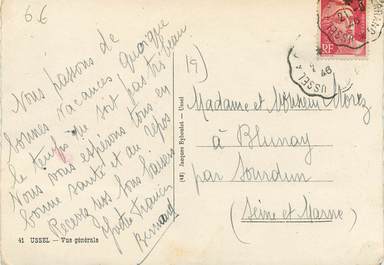 6.6
Nous passons de
bonnes vacances quoique
le temps ne soit pas très beau
Nous vous espérons tous en
bonne santé et au repos
Recevez nos bons baisers
Bernard
41 USSEL - Vue générale
(48) Jacques Eyboulet - Ussel
19)
Madame et Monsieur
à Blunay
par Sourdun
(Seine et Marne)
RF
USSEL
46